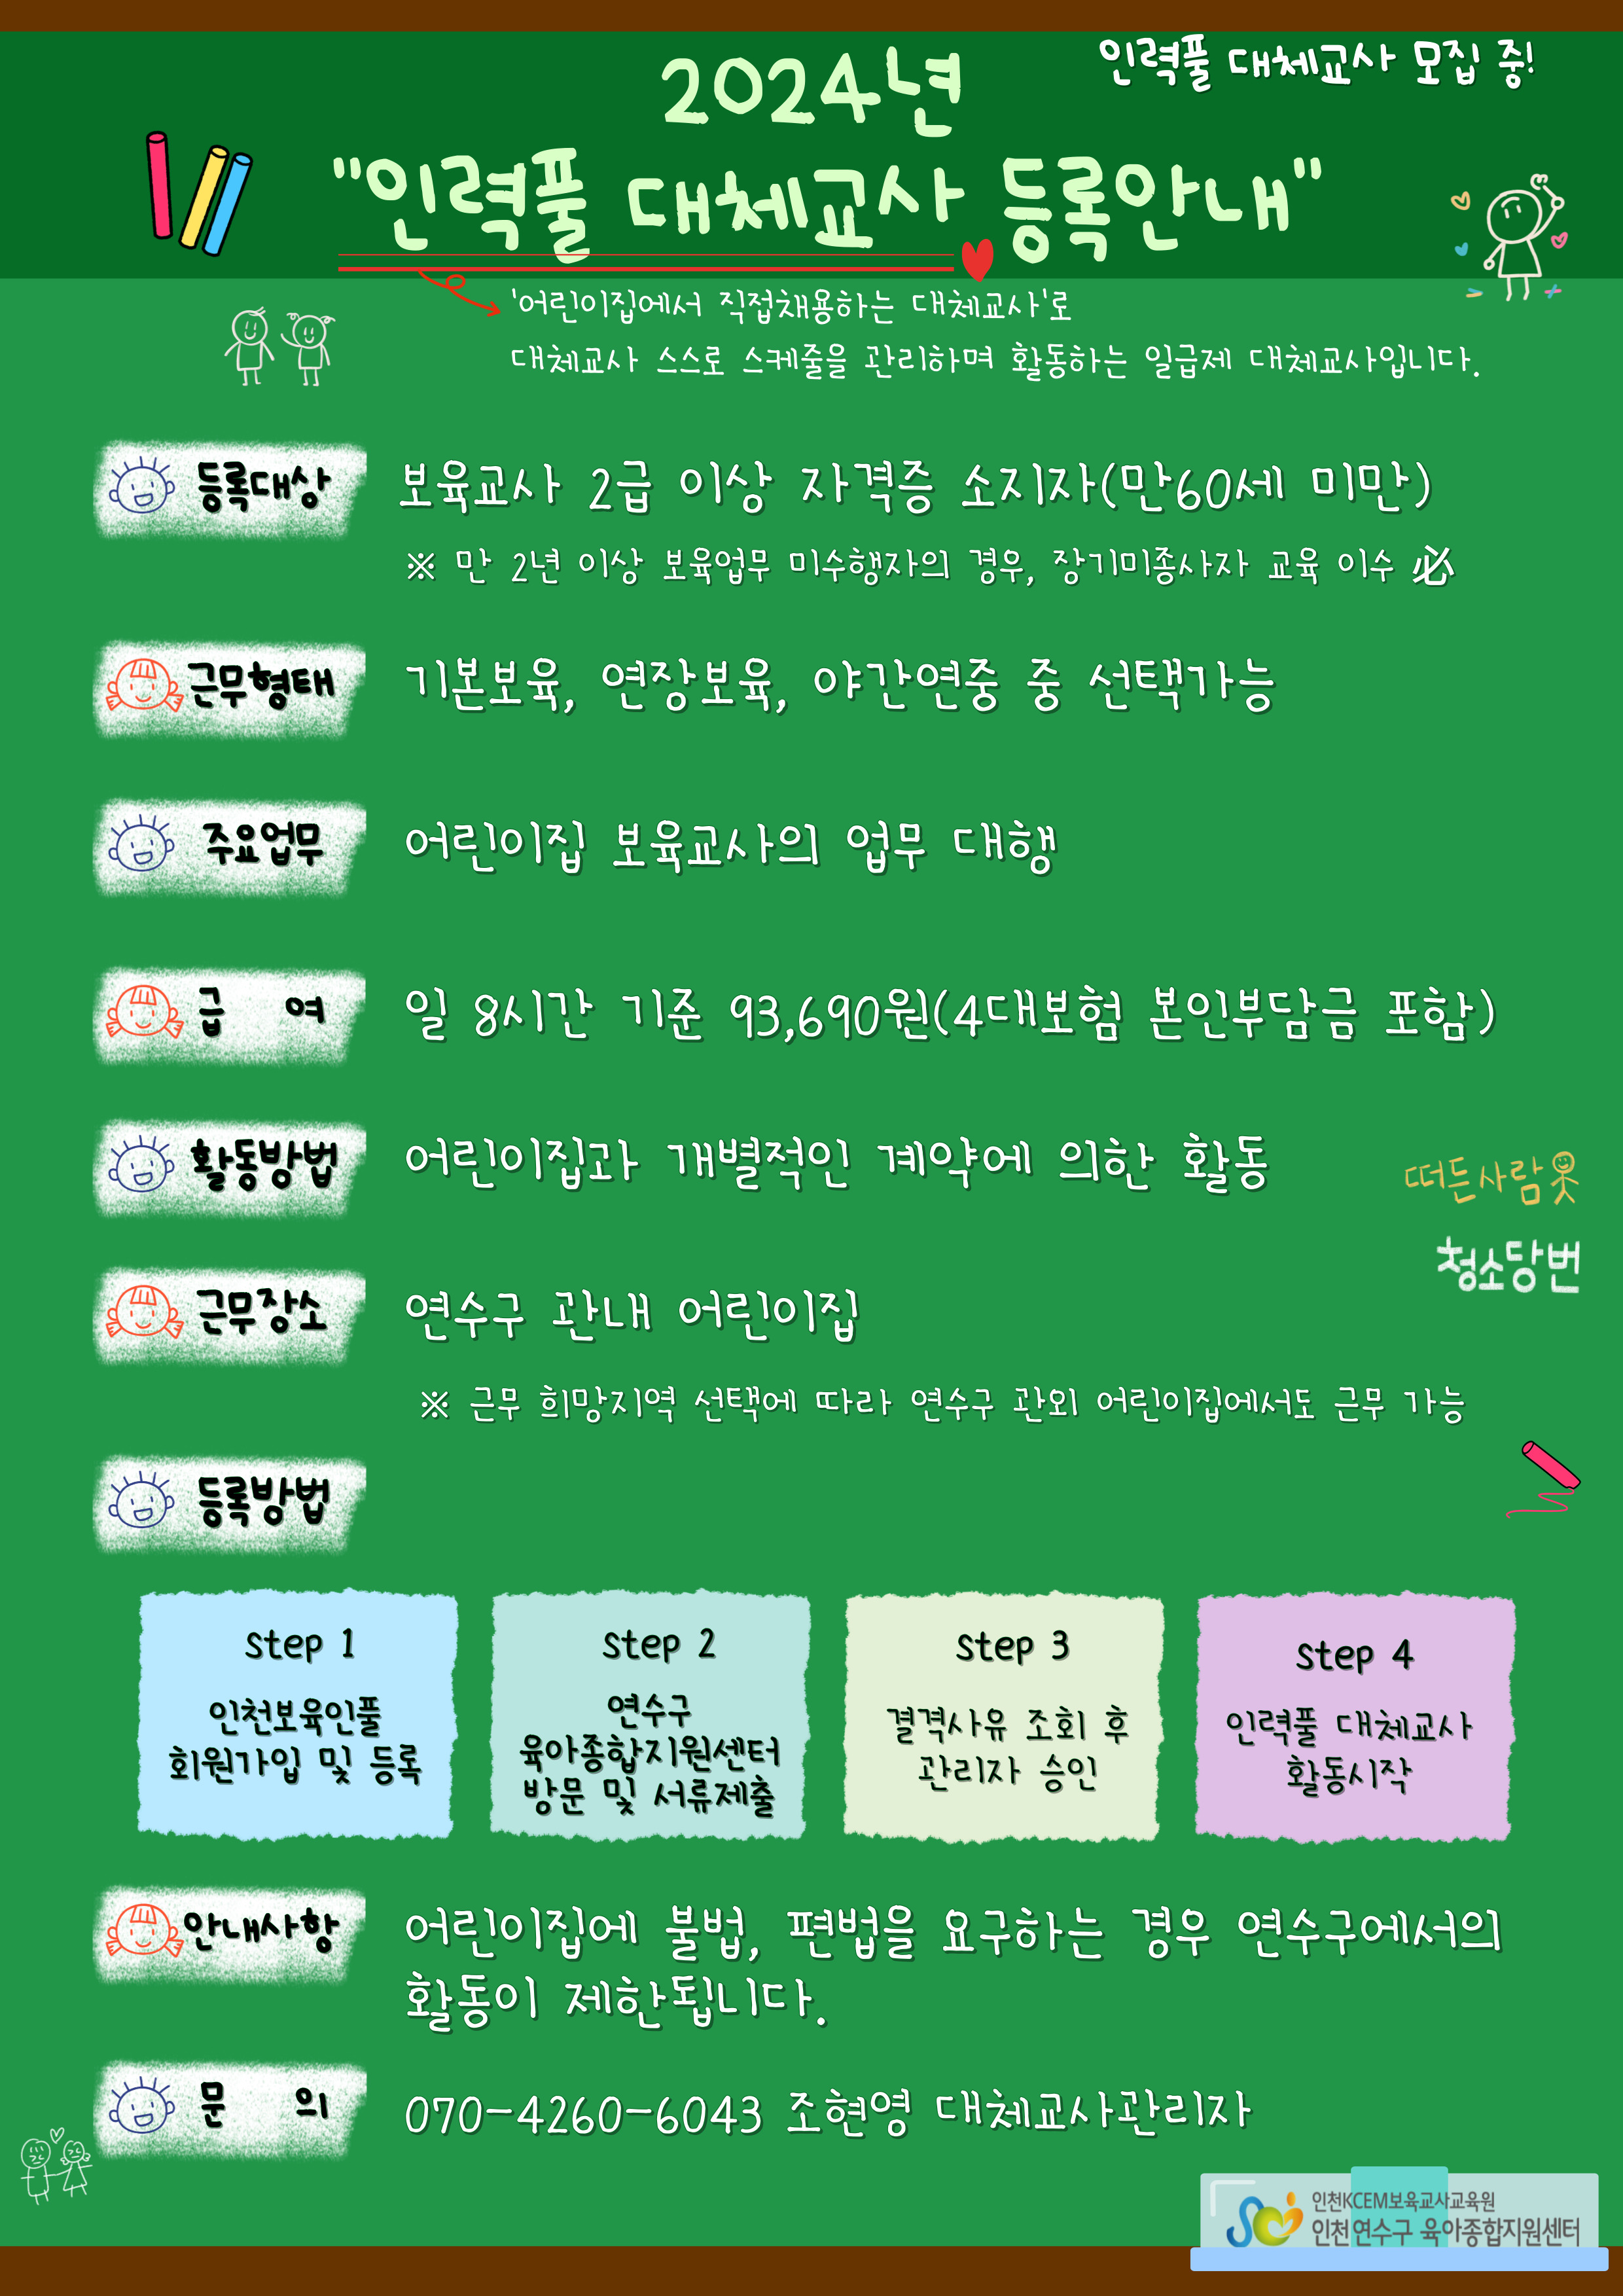 인력풀 대체교사 모집 중!
2024년
"인력풀 대체교사 등록안내"
'어린이집에서 직접채용하는 대체교사'로
대체교사 스스로 스케줄을 관리하며 활동하는 일급제 대체교사입니다.
등록대상
보육교사 2급 이상 자격증 소지자(만60세 미만)
※ 만 2년 이상 보육업무 미수행자의 경우, 장기미종사자 교육 이수 必
근무형태
기본보육, 연장보육, 야간연중 중 선택가능
주요업무
어린이집 보육교사의 업무 대행
급 여
일 8시간 기준 93,690원(4대보험 본인부담금 포함)
활동방법
어린이집과 개별적인 계약에 의한 활동
떠든사람
청소당번
근무장소
연수구 관내 어린이집
※ 근무 희망지역 선택에 따라 연수구 관외 어린이집에서도 근무 가능
등록방법
Step 1
인천보육인풀
회원가입 및 등록
Step 2
연수구
육아종합지원센터
방문 및 서류제출
Step 3
결격사유 조회 후
관리자 승인
Step 4
인력풀 대체교사
활동시작
안내사항
어린이집에 불법, 편법을 요구하는 경우 연수구에서의
활동이 제한됩니다.
문 의
070-4260-6043 조현영 대체교사관리자
인천KCEM보육교사교육원
인천연수구 육아종합지원센터